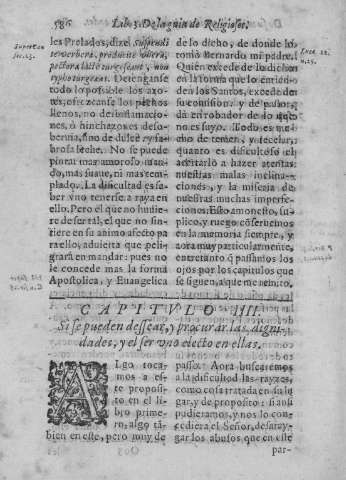 586 Lib. 3. De la guia de Religiosos.
les Prelados, dize: Suspendi
te verbera, producite vbera,
pectora lacte turgescant, non
typho turgeant. Detenganse
todo lo possible los aço-
tes, ofrezcanse los pechos
llenos, no de inflamacio-
nes, ò hinchazones de so-
beruia, sino de dulce y sa-
brosa leche. No se puede
pintar mas amoroso man-
do, mas suaue, ni mas tem-
plado. La dificultad es sa-
ber vno tenerse a raya en
ello. Pero el que no huuie-
re de ser tal, el que no sin-
tiere en su animo afecto pa
ra ello, aduierta que peli-
grarà en mandar: pues no
le concede mas la forma
Apostolica, y Euangelica
de lo dicho, de donde lo
tomò Bernardo mi padre.
Quien excede de lo dicho
en la forma que lo entien-
den los Santos, excede de
su comission, y de pastor,
dà en robador de lo que
no es suyo. Todo es mu-
cho de temer, y recelar,
quanto es dificultoso el
acertarlo a hazer atentas
nuestras malas inclina-
ciones, y la miseria de
nuestras muchas imperfe-
ciones. Esto amonesto, su-
plico, y ruego cõseruemos
en la memoria siempre, y
aora muy particularmente,
entretanto q̃ passamos los
ojos por los capitulos que
se siguen, a que me remito.
Luce 22.
CAPITVLO IIII.
Si se pueden dessear, y procurar las digni-
dades, y el ser vno electo en ellas.
ALgo toca-
mos a es-
te proposi-
to en el li-
bro prime-
ro, algo tã-
bien en este, pero muy de
passo: Aora buscaremos
a la dificultad las rayzes,
como cosa tratada en su lu
gar, y de proposito: si assi
pudieramos, y nos lo con-
cediera el Señor, desaray-
gar los abusos que en este
par-